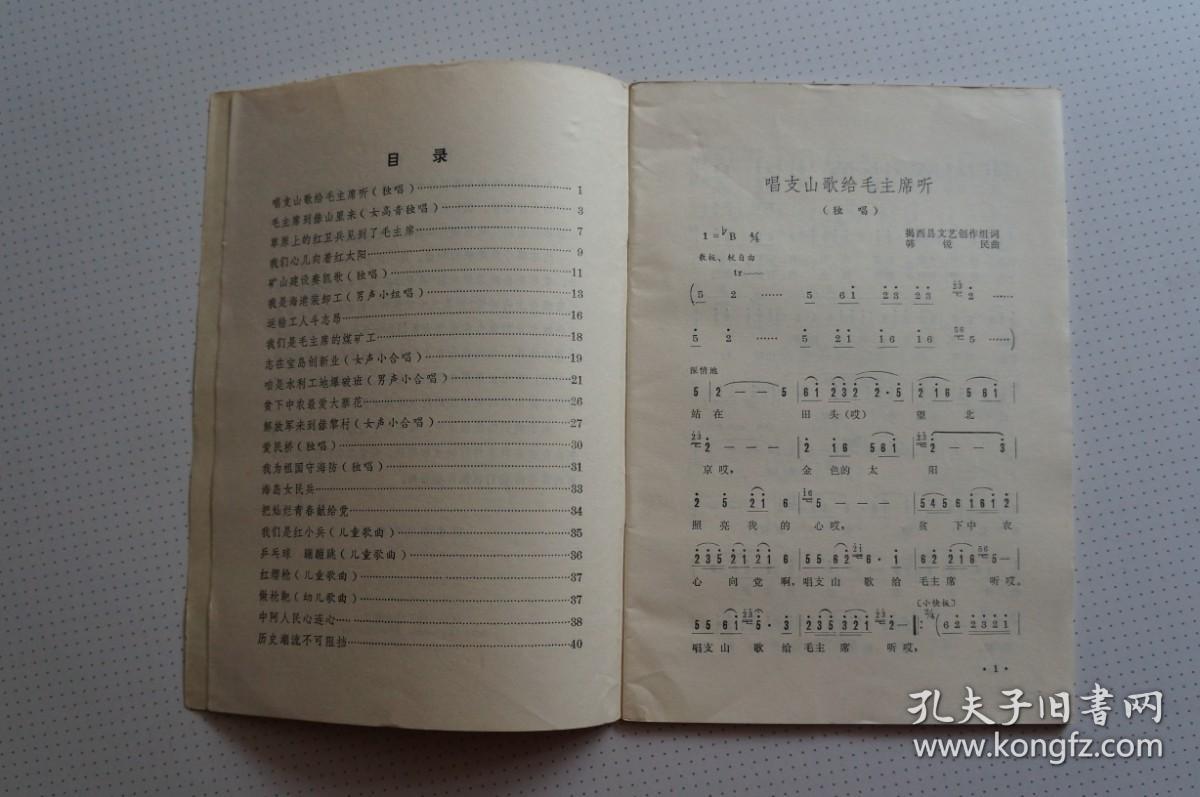 目 录
唱支山歌给毛主席听(独唱)……1
毛主席到傣山里来(女高音独唱)……3
草原上的红卫兵见到了毛主席……7
我们心儿向着红太阳……9
矿山建设奏凯歌(独唱)……11
我是海港装卸工(男声小组唱)……13
运输工人斗志昂……16
我们是毛主席的煤矿工……18
志在宝岛创新业(女声小合唱)……19
咱是水利工地爆破班(男声小合唱)……21
贫下中农最爱大寨花……26
解放军来到傣黎村(女声小合唱)……27
爱民桥(独唱)……30
我为祖国守海防(独唱)……31
海岛女民兵……33
把灿烂青春献给党……34
我们是红小兵(儿童歌曲)……35
乒乓球 蹦蹦跳(儿童歌曲)……36
红缨枪(儿童歌曲)……37
做枪靶(幼儿歌曲)……37
中阿人民心连心……38
历史潮流不可阻挡……40
唱支山歌给毛主席听
(独 唱)
1=♭B 4/4
揭西县文艺创作组词
韩锐民曲
散板、较自由
tr
(5 2 …… 5 61 23 23 2 ……
5 2 …… 5 21 16 16 5 ……)
深情地
站在 田头(哎) 望北
京哎, 金色的太 阳
照亮我的心哎, 贫下中农
心 向党啊,唱支山 歌给 毛主席 听哎。
[小快板]
唱支山 歌给毛主席 听哎,
·1·
孔夫子旧书网
www.kongfz.com